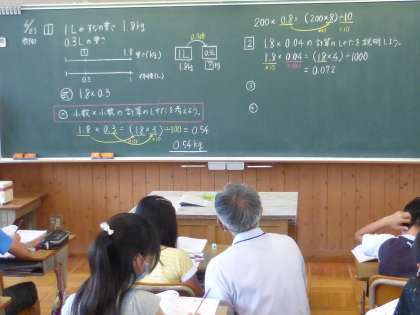 1 1Lのすなの重さ 1.8kg
0.3Lの重さ
0 1.8 重さ(kg)
0.3 1
1L 0.3L
1.8kg ?kg
式 1.8×0.3
小数×小数の計算のしかたを考えよう。
1.8×0.3=(18×4)÷100=0.54
×10 ×10
0.54kg
200×0.8=(200×8)÷10
×10 ÷10
2 1.8×0.04の計算のしかたを説明しよう。
1.8×0.04=(18×4)÷1000
×10 ×100
=0.072
③
④